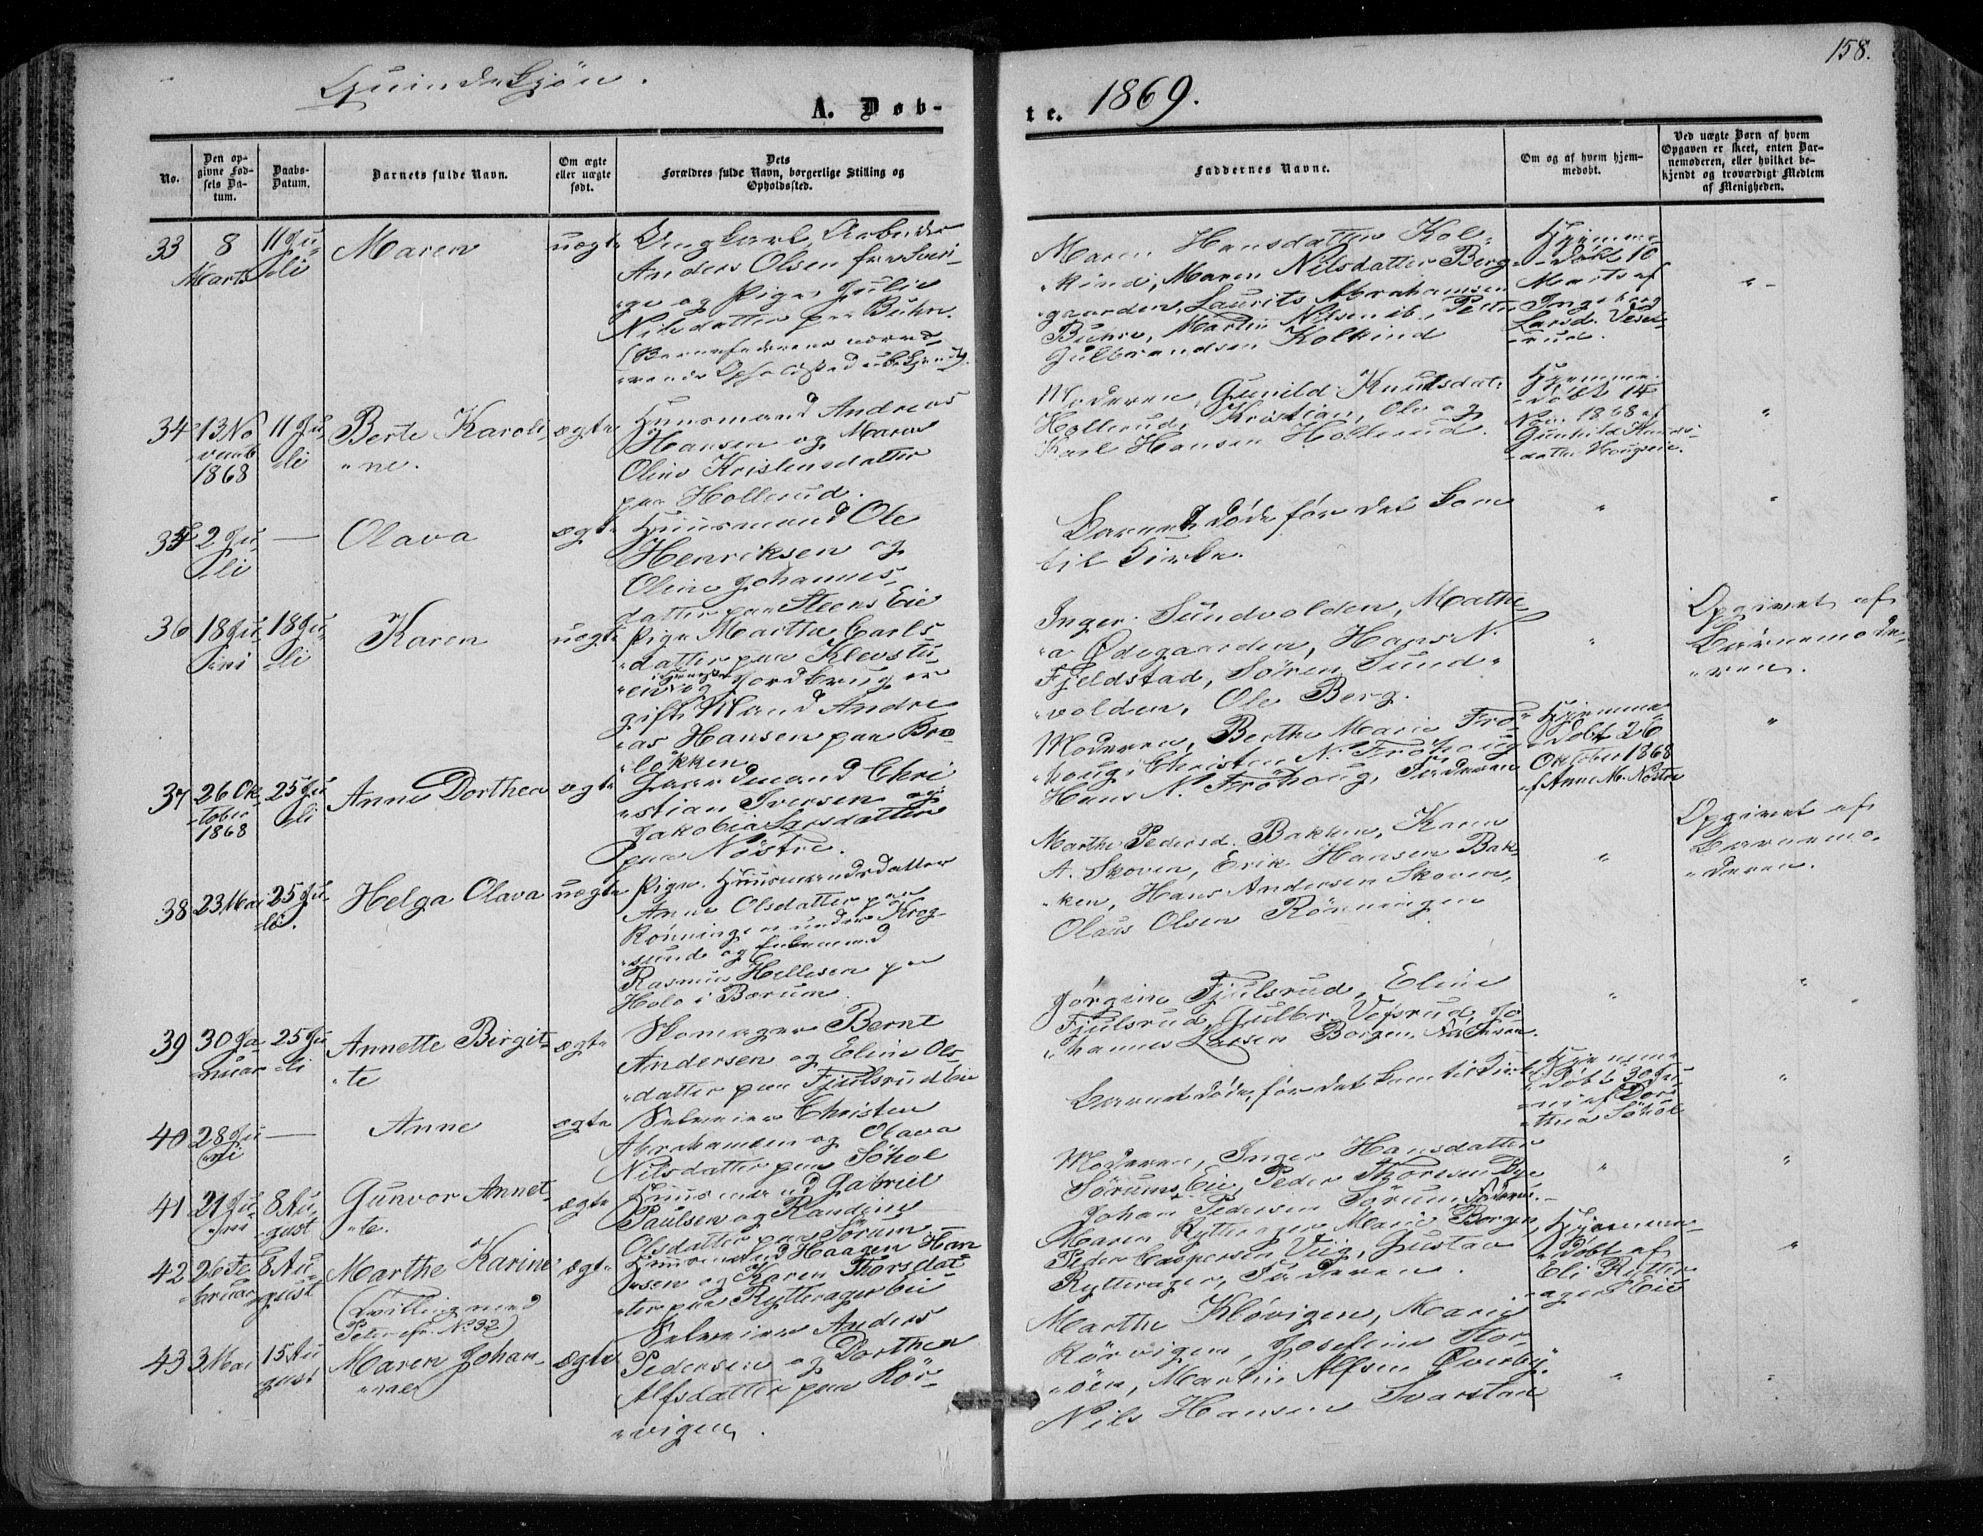 158.
Quindekjøn.
1869.
A. Døb-
te.
No.
Den op-
givne Fød-
sels Da-
tum.
Daabs-
Datum.
Barnets fulde Navn.
Om ægte
eller uægte
født.
Dets
Forældres fulde Navn, borgerlige Stilling og
Opholdssted.
Faddernes Navne.
Om og af hvem hjem-
medøbt.
Ved uægte Børn af hvem
Opgaven er skeet, enten Bar-
nemoderen, eller hvilket be-
kjendt og troværdigt Medlem
af Menigheden.
33
8
Marts
11 Ju-
li
Maren
uægte
Ungkarl, Arbeider
Anders Olsen fra Sveri-
ge og Pige Julie
Nilsdatter paa Buhre.
(Barnefaderens nærvæ-
rende Opholdssted ubekjendt).
Maren Hansdatter Kol-
kind, Maren Nilsdatter Berg-
gaarden, Laurits Abrahamsen
Buhre, Martin Nilsen ib., Peter
Gulbrandsen Kolkind
Hjemme-
døbt 10
Marts af
Ingeborg
Larsd. Vesæt-
rud.
"
34
13 No
vemb
1868
11 Ju-
li
Berte Karoli-
ne.
ægte
Huusmand Andreas
Hansen og Maren
Oline Kristensdatter
paa Hollerud.
Moderen, Gunild Knutsdat.
Hollerud, Kristian, Ole og
Karl Hansen Hollerud.
Hjemme-
døbt 14
Nov. 1868 af
Gunhild Knuds-
datter
"
35
2 Ju-
li
—
Olava
ægte
Huusmand Ole
Henriksen og
Oline Johannes-
datter paa Steens Eie
Barnet døde før det kom
til Kirke.
"
"
36
18 Ju-
ni
18 Ju-
li
Karen
uægte
Pige Marthe Carls-
datter paa Klevstu-
en og Jordbruger
gift Mand Andre-
as Hansen paa Bra-
løkken
Inger Sundvolden, Mathe-
a Ødegaarden, Hans N.
Fjeldstad, Søren Sund-
volden, Ole Berg.
"
Opgivet af
Barnemode-
ren.
37
26 Ok
tober
1868
25 Ju
li
Anne Dorthea
ægte
Gaardmand Chri
stian Iversen og
Jakobia Larsdatter
paa Nøstre.
Moderen, Berthe Marie Frø-
houg, Christen N. Frøhoug,
Hans N. Frøhoug, Faderen
Hjemme-
døbt 26
Oktober 1868
af Anne M. Nøstre
"
38
23 Mai
25 Ju-
li.
Helga Olava
uægte
Pige, Huusmandsdatter
Anne Olsdatter paa
Rønningen under Krog-
sund og Enkemand
Rasmus Hellesen paa
Holo i Bærum
Marthe Pedersd. Bakken, Karen
A. Skoven, Erik Hansen Bak-
ken, Hans Andersen Skoven,
Olaus Olsen Rønningen
"
Opgivet af
Barnemo-
deren.
39
30 Ja-
nuar
25 Ju
li
Annette Birgit-
te
ægte
Skomager Bernt
Andersen og Eline Ols-
datter paa Fjulsrud Eie
Jørgine Fjulsrud, Eline
Fjulsrud, Gulbr. Vefsrud, Jo-
hannes Larsen Borgen, Faderen.
"
"
40
28 Ju
ni
—
Anne
ægte
Selveier Christen
Abrahamsen og Olava
Nilsdatter paa Søhol
Barnet døde, før det kom til Kirke
Hjemme-
døbt 30 Ju-
ni af Dor-
thea Søhol
"
41
21 Ju-
ni
8 Au-
gust
Gunvor Annet-
te.
ægte
Huusmand Gabriel
Paulsen og Randine
Olsdatter paa Sørum
Moderen, Inger Hansdatter
Sørums Eie, Peder Thoresen Bye
Johan Pedersen Sørum, Faderen.
"
"
42
26 Fe
bruar
8 Au-
gust
Marthe Karine
(Tvilling med
Peter cfr. No. 32)
ægte
Huusmand Haagen Han
sen og Karen Thorsdat
ter paa Rytterager Eie
Maren Rytterager, Marie Borgen,
Peder Caspersen Viig, Gustav
Rytterager, Faderen.
Hjemme-
døbt af
Eli Rytter-
ager Eie
"
43
3 Mai
15 Au
gust
Maren Johan-
ne
ægte
Selveier Anders
Pedersen og Dorthea
Alfsdatter paa Rør-
vigen.
Marthe Kløvigen, Marie
Rørvigen, Josefine Stor-
øen, Martin Alfsen Øverby,
Nils Hansen Svarstad
"
"